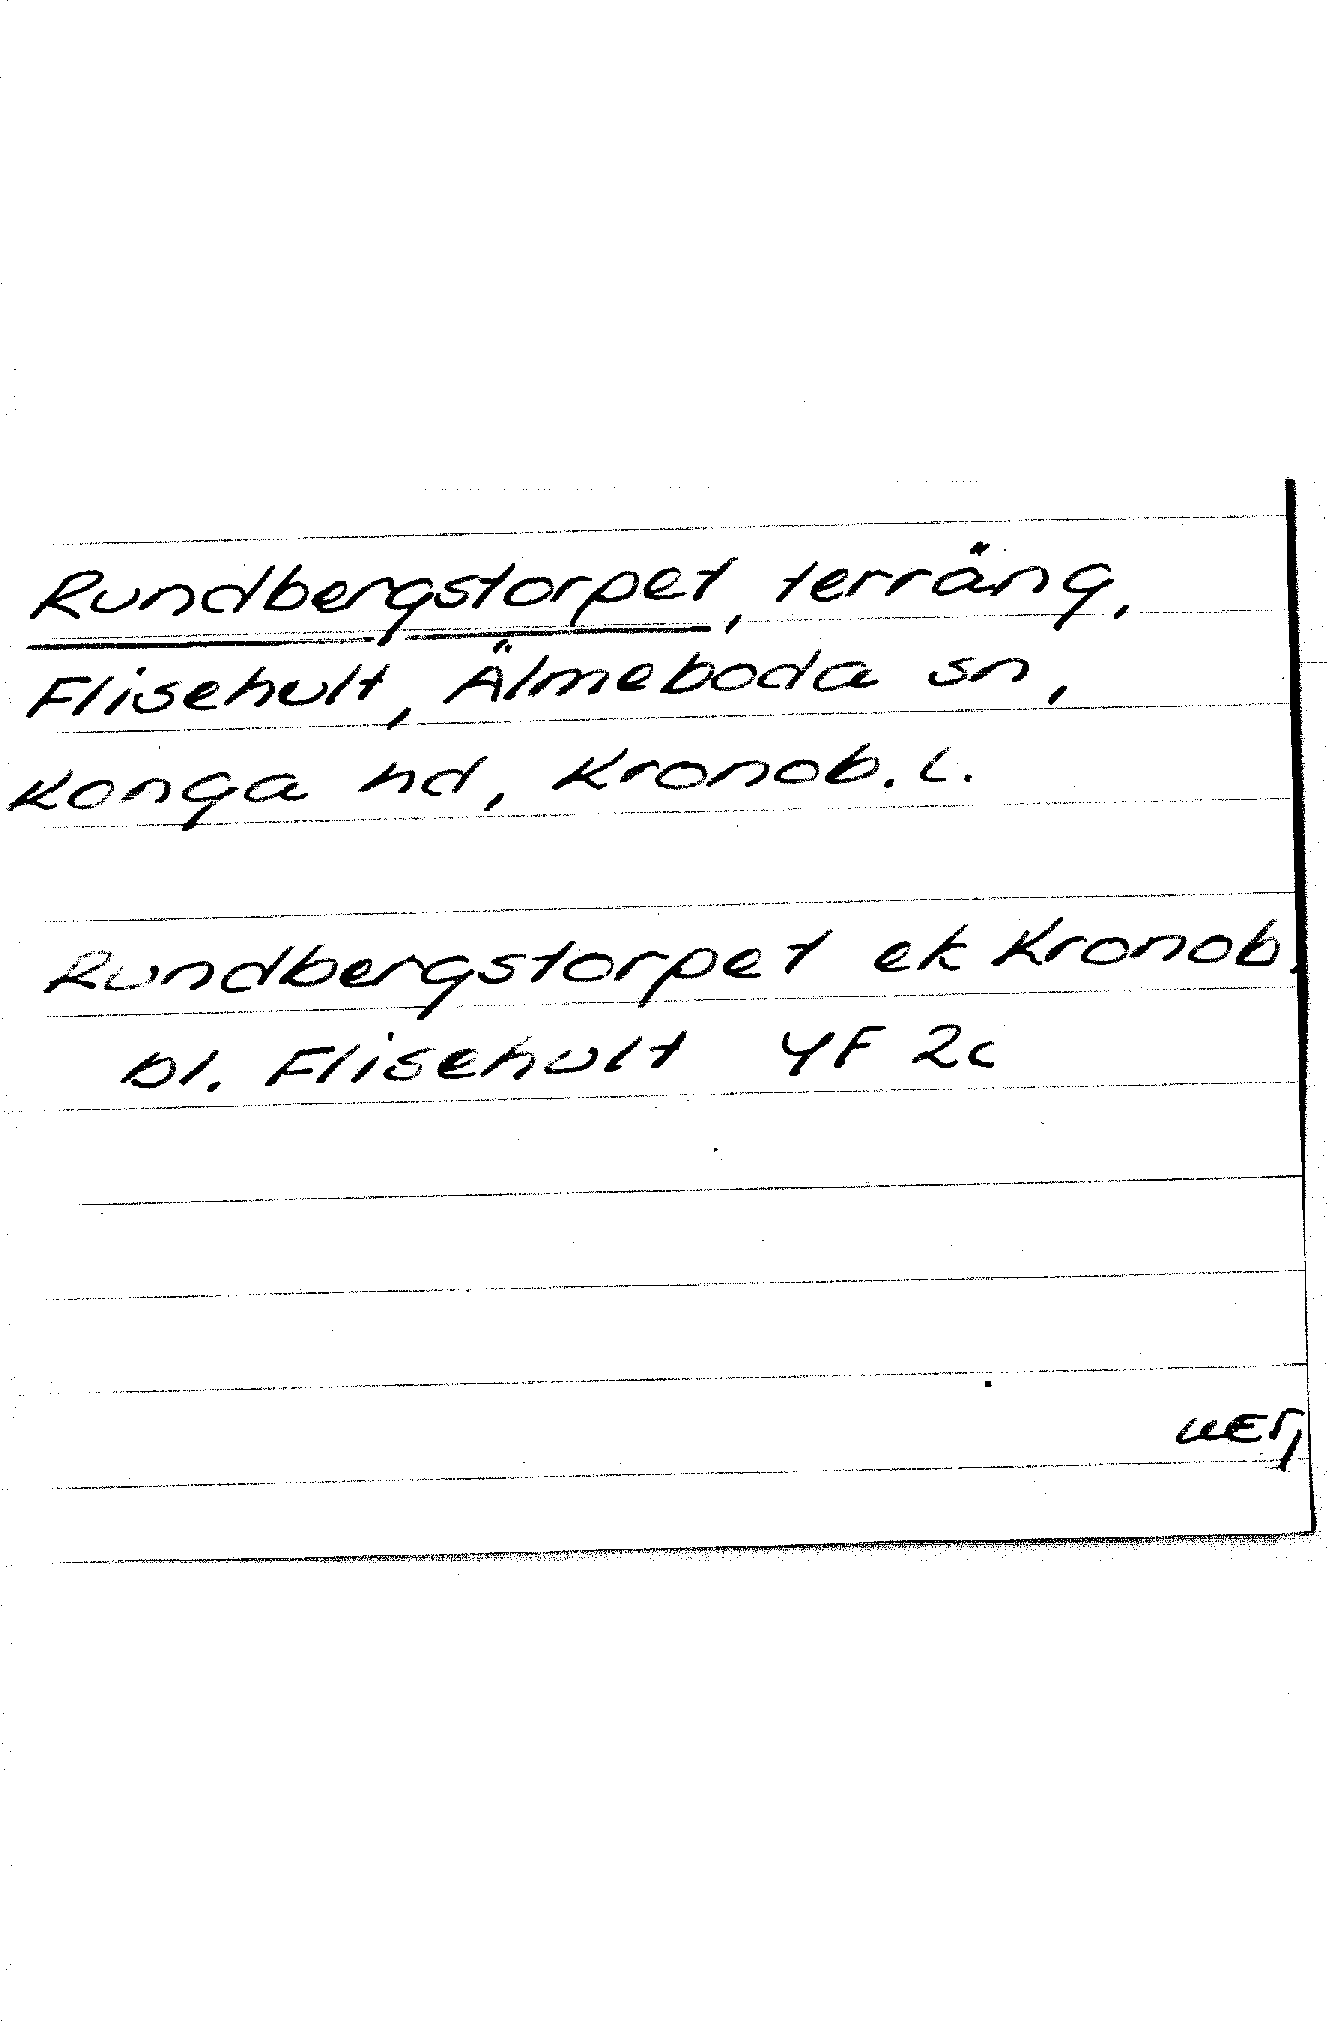 Rundbergstorpet, terräng,
Flisehult, Älmeboda sn,
Konga hd, Kronob. L.
Rundbergstorpet ek Kronob.
bl. Flisehult 4F 2c